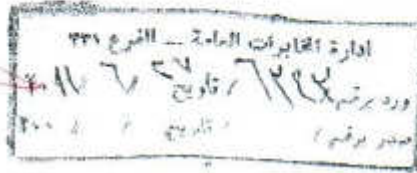 ادارة المخابرات العامة ــ الفرع ٣٣١
ورد برقم / ٦٢٩٣ / تاريخ ٢٧ / ٦ /
صدر برقم / / تاريخ / / ٢٠٠